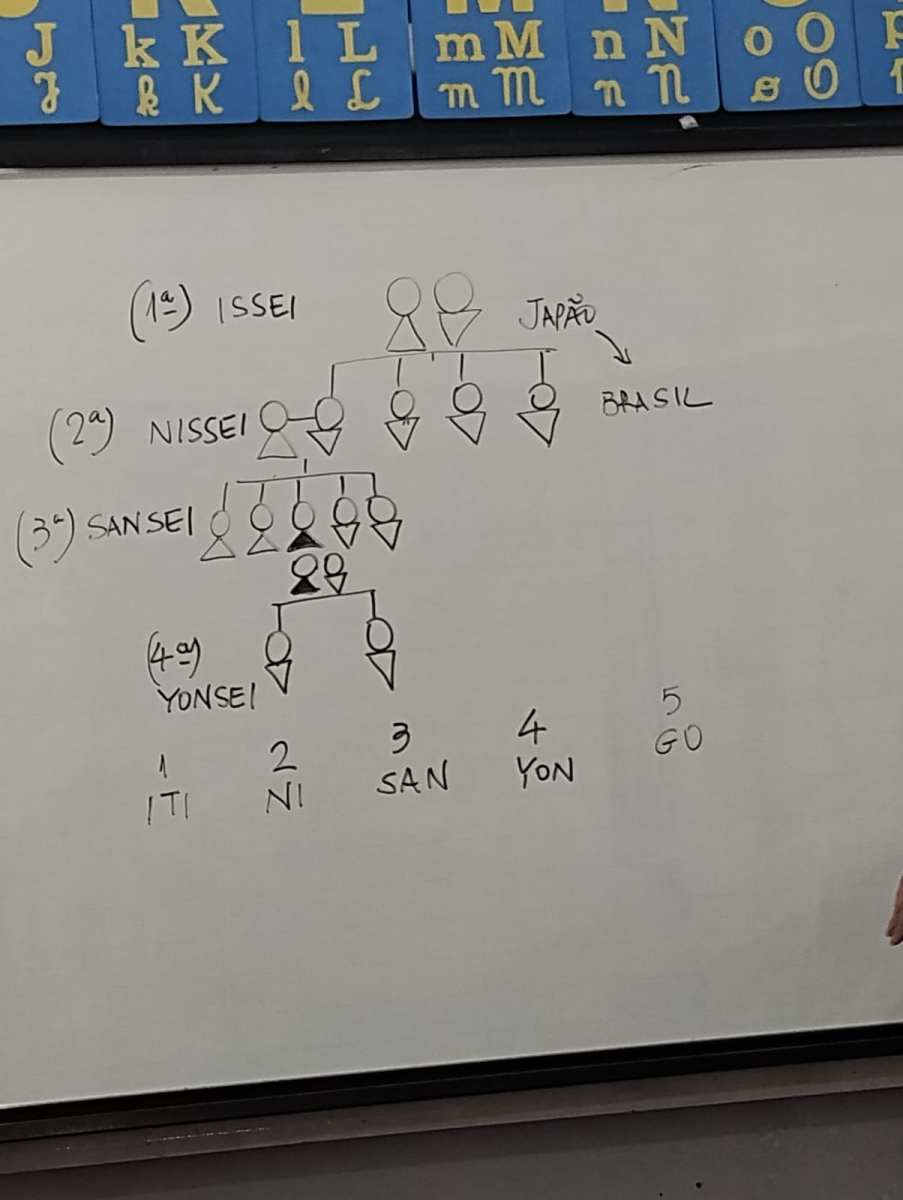 J k K l L m M n N o O
J k K l L m M n N o O
(1ª) ISSEI JAPÃO
BRASIL
(2ª) NISSEI
(3ª) SANSEI
(4ª)
YONSEI
1 2 3 4 5
ITI NI SAN YON GO